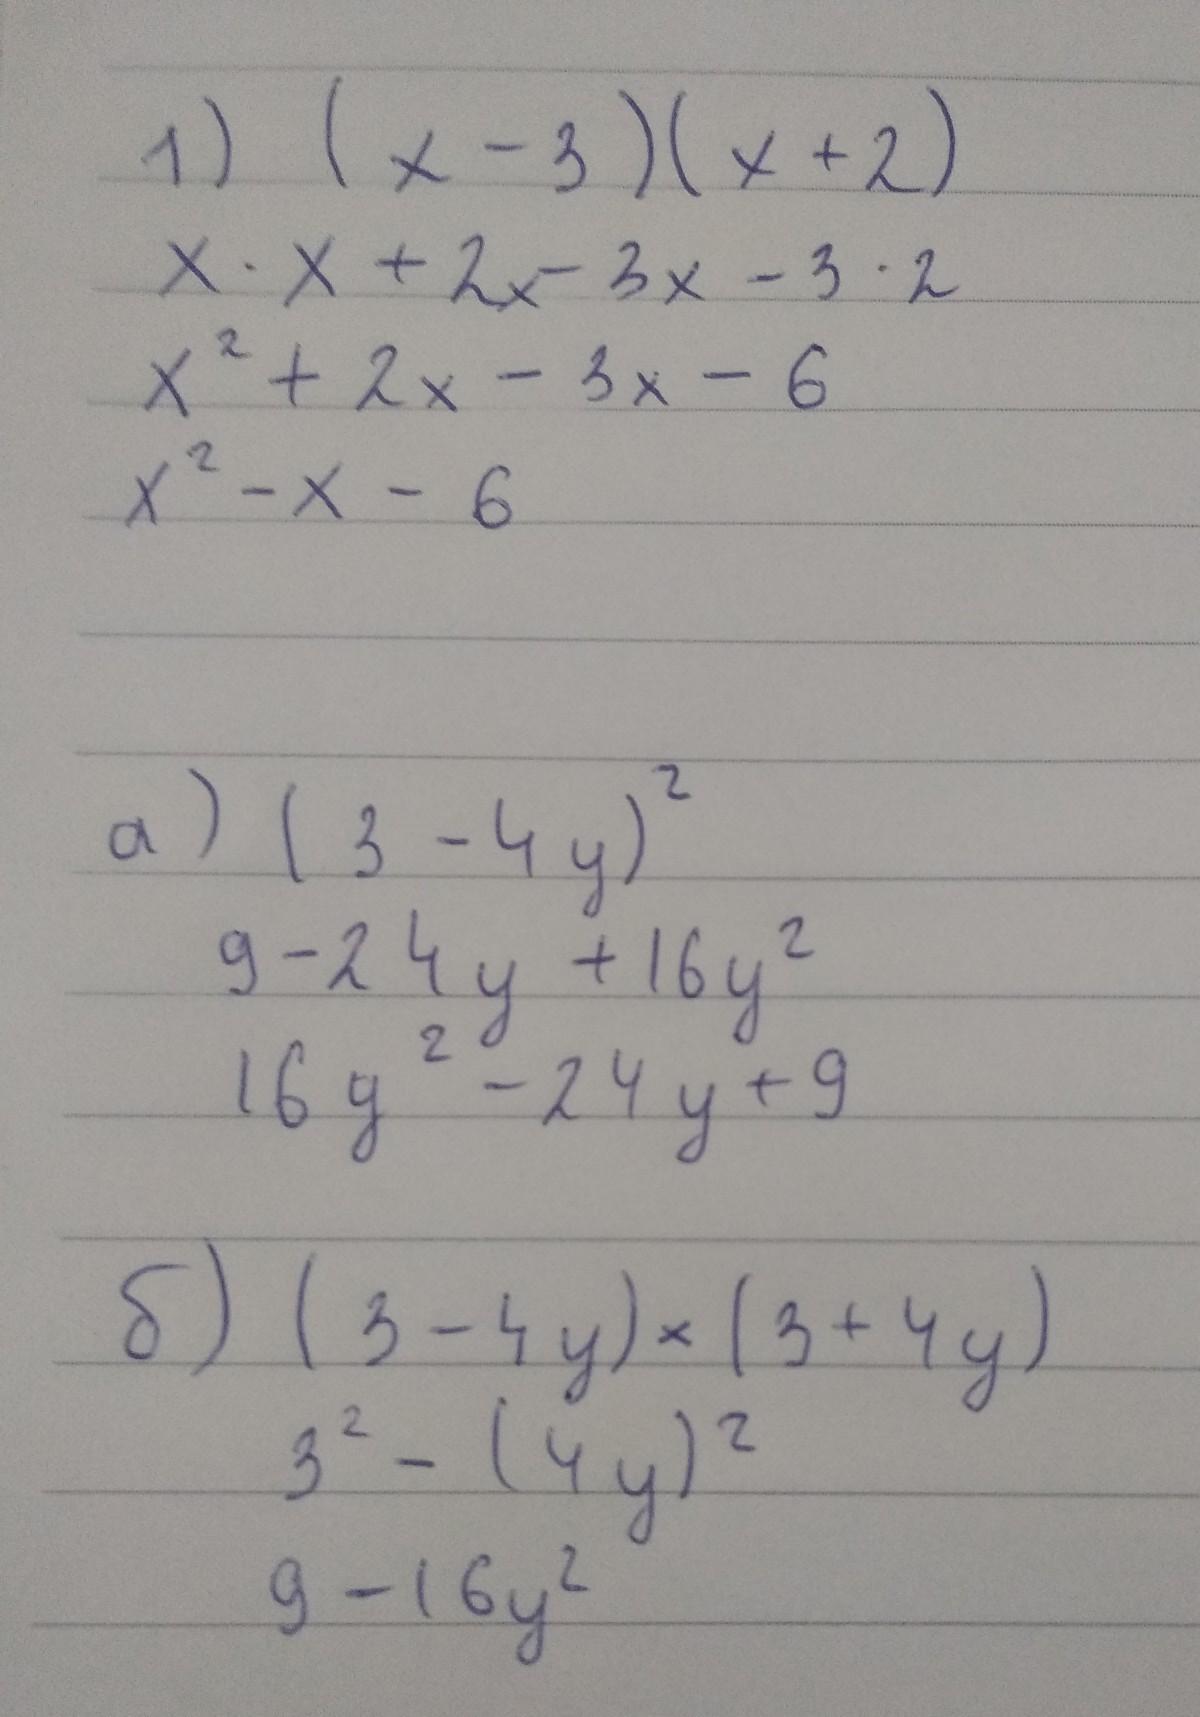 1) (x - 3)(x + 2)
x · x + 2x - 3x - 3 · 2
x² + 2x - 3x - 6
x² - x - 6
а) (3 - 4y)²
9 - 24y + 16y²
16y² - 24y + 9
б) (3 - 4y) × (3 + 4y)
3² - (4y)²
9 - 16y²